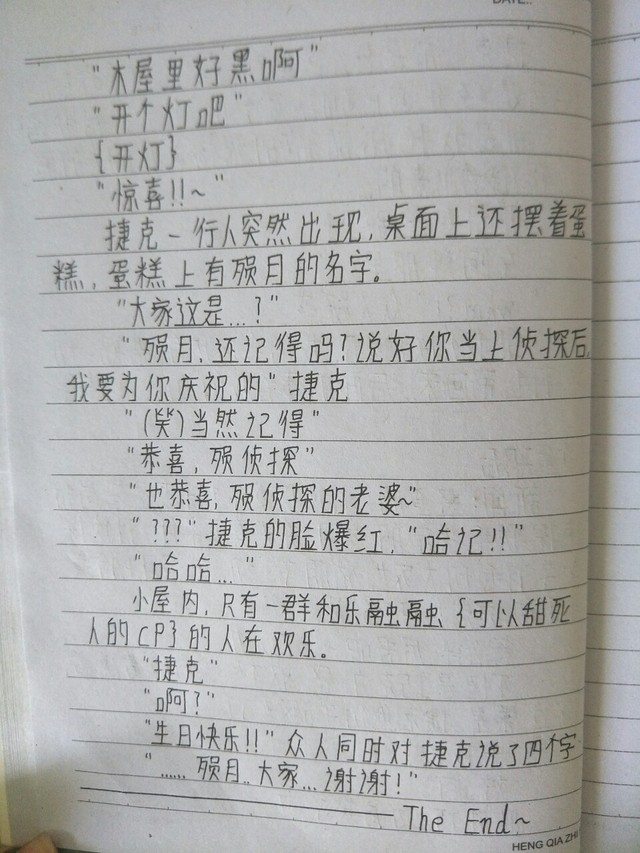 DATE..
"木屋里好黑啊"
"开个灯吧"
{开灯}
"惊喜!!~"
捷克一行人突然出现,桌面上还摆着蛋
糕,蛋糕上有殒月的名字。
"大家这是...?"
"殒月,还记得吗?说好你当上侦探后,
我要为你庆祝的"捷克
"(笑)当然记得"
"恭喜,殒侦探"
"也恭喜,殒侦探的老婆~"
"???"捷克的脸爆红,"哈记!!"
"哈哈..."
小屋内,只有一群和乐融融{可以甜死
人的CP}的人在欢乐。
"捷克"
"啊?"
"生日快乐!!"众人同时对捷克说了四个字
"......殒月..大家...谢谢!"
The End~
HENG QIA ZHI